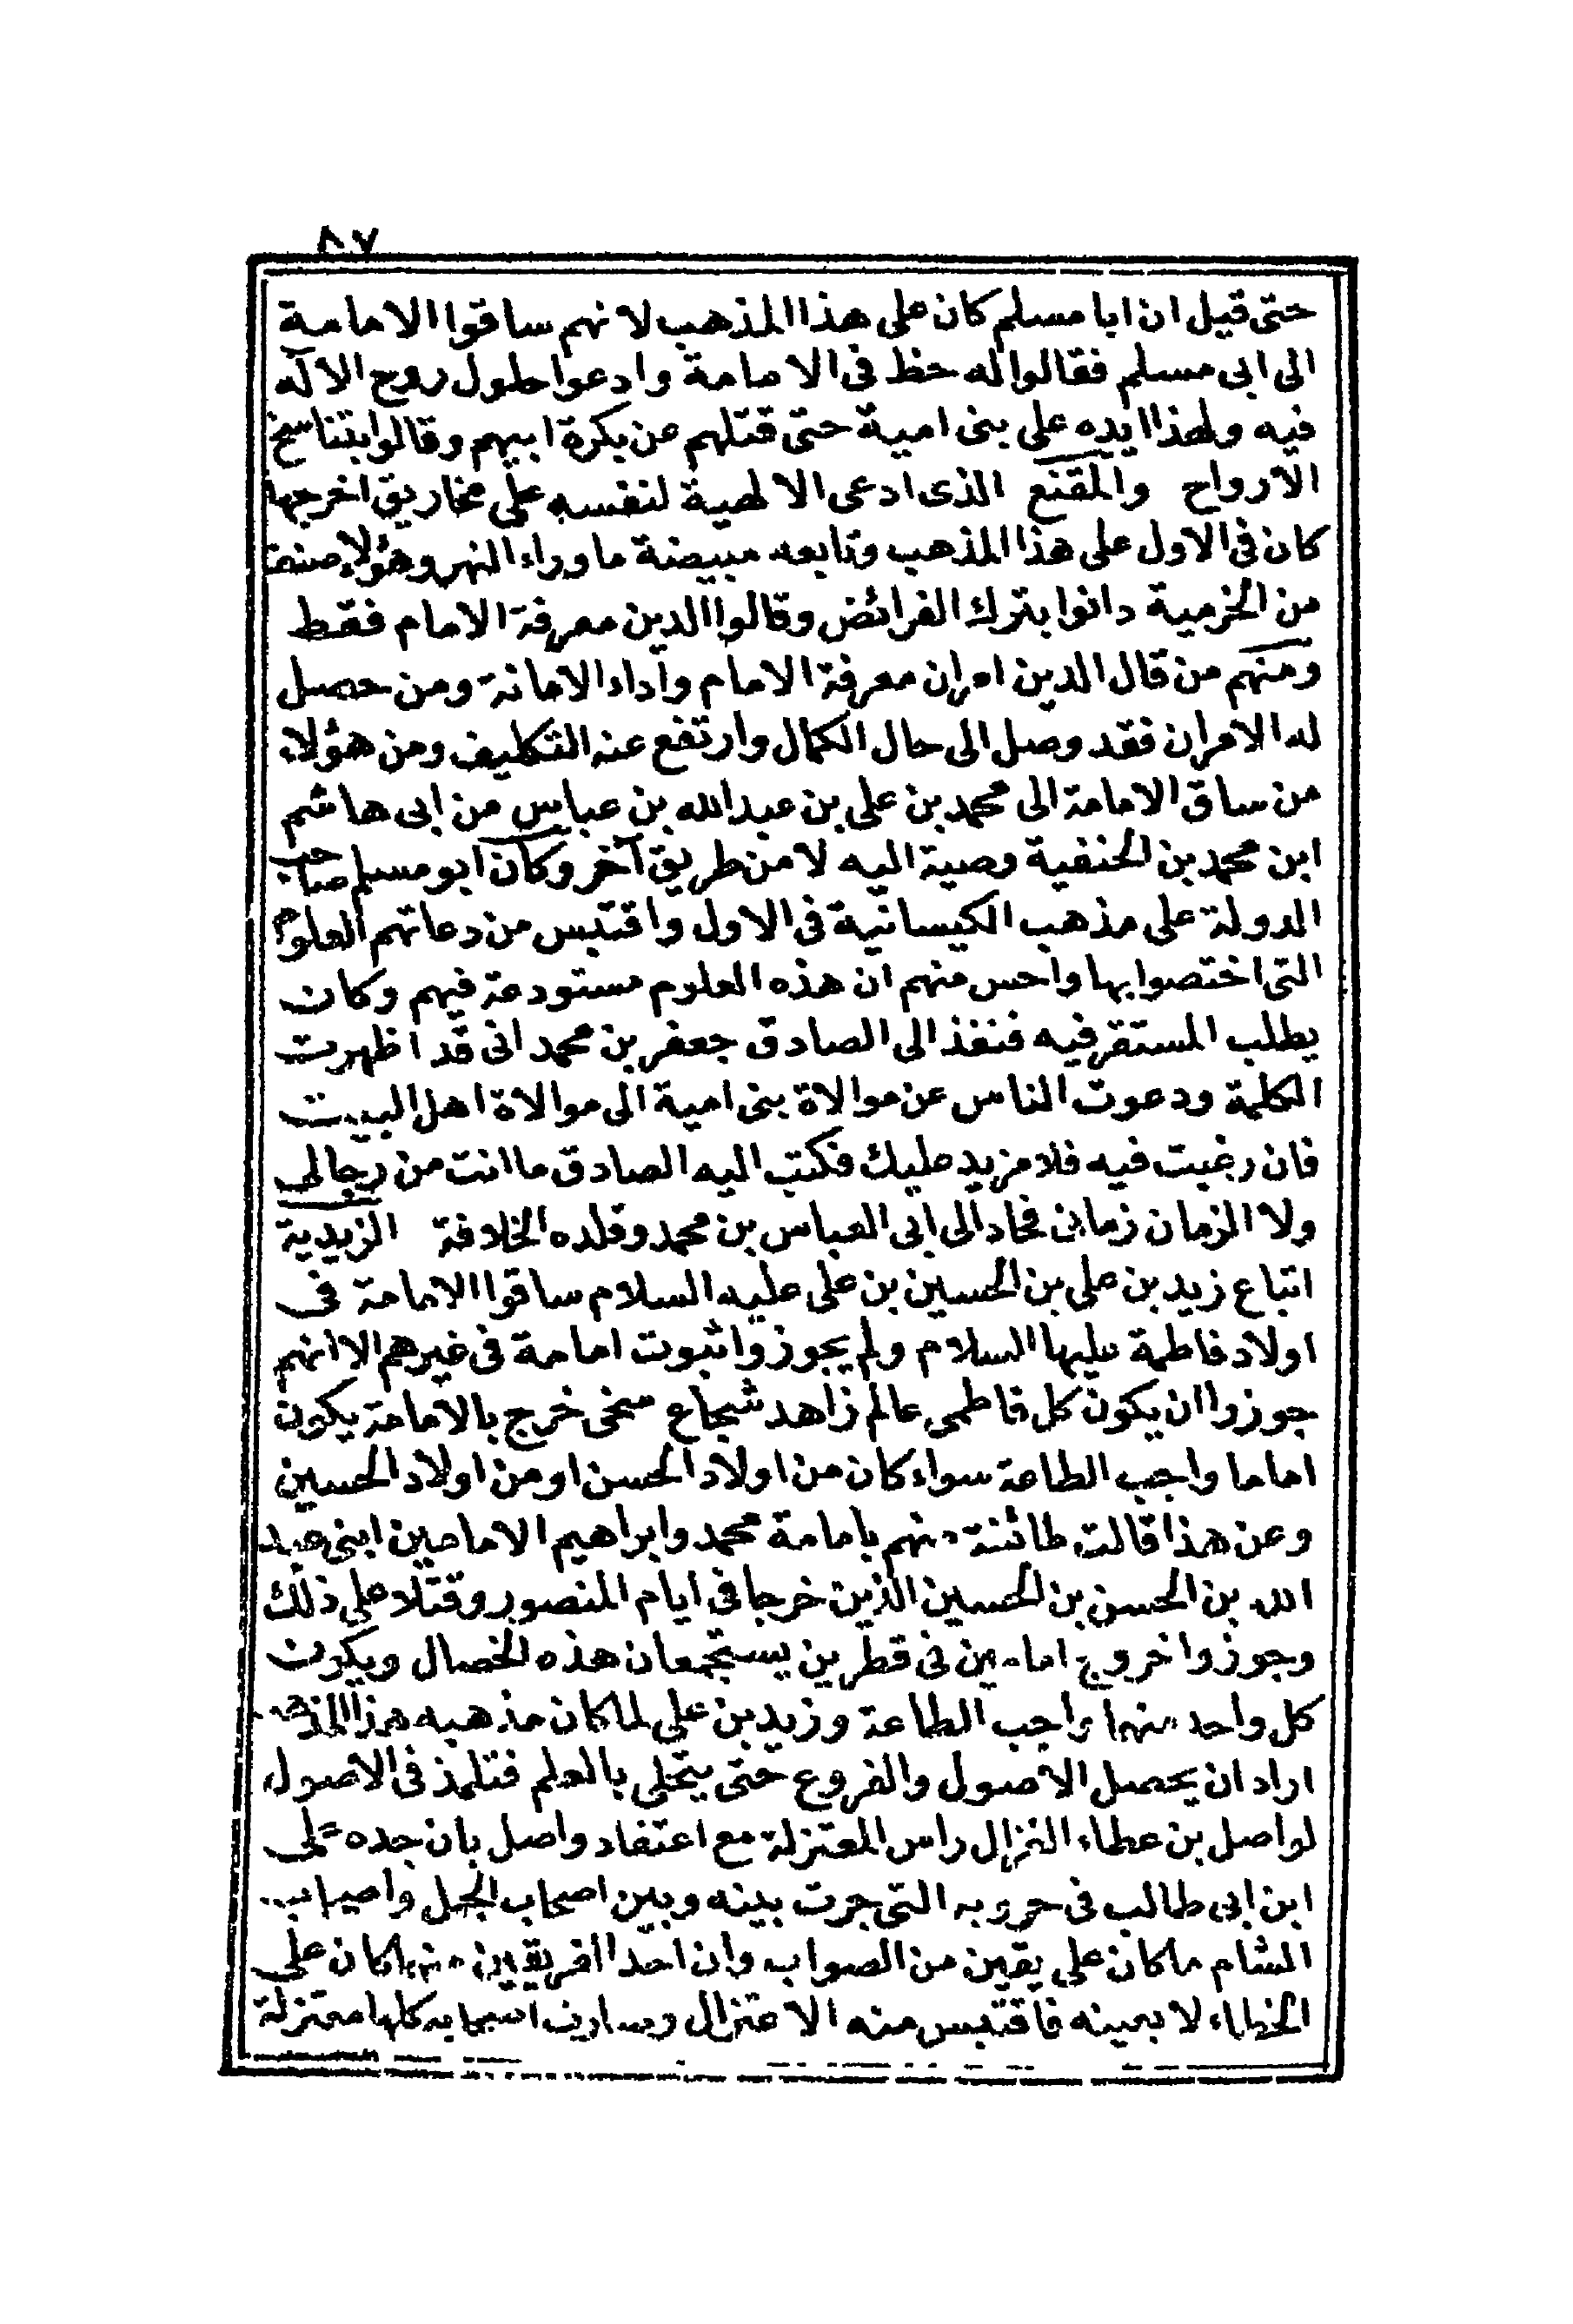 ٨٧
حتى قيل ان ابا مسلم كان على هذا المذهب لانهم ساقوا الامامة
الى ابى مسلم فقالوا له حظ فى الامامة وادعوا حلول روح الاله
فيه ولهذا ايده على بنى امية حتى قتلهم عن بكرة ابيهم وقالوا بتناسخ
الارواح والمقنع الذى ادعى الالهية لنفسه على مخاريق اخرجها
كان فى الاول على هذا المذهب وتابعه مبيضة ما وراء النهر وهؤلاء صنف
من الخرمية دانوا بترك الفرائض وقالوا الدين معرفة الامام فقط
ومنهم من قال الدين امران معرفة الامام واداء الامانة ومن حصل
له الامران فقد وصل الى حال الكمال وارتفع عنه التكليف ومن هؤلاء
من ساق الامامة الى محمد بن على بن عبد الله بن عباس من ابى هاشم
ابن محمد بن الحنفية وصية اليه لا من طريق آخر وكان ابو مسلم صاحب
الدولة على مذهب الكيسانية فى الاول واقتبس من دعاتهم العلوم
التى اختصوا بها واحس منهم ان هذه العلوم مستودعة فيهم وكان
يطلب المستقر فيه فنفذ الى الصادق جعفر بن محمد انى قد اظهرت
الكلمة ودعوت الناس عن موالاة بنى امية الى موالاة اهل البيت
فان رغبت فيه فلا مزيد عليك فكتب اليه الصادق ما انت من رجالى
ولا الزمان زمانى فحاد الى ابى العباس بن محمد وقلده الخلافة الزيدية
اتباع زيد بن على بن الحسين بن على عليه السلام ساقوا الامامة فى
اولاد فاطمة عليها السلام ولم يجوزوا ثبوت امامة فى غيرهم الا انهم
جوزوا ان يكون كل فاطمى عالم زاهد شجاع سخى خرج بالامامة يكون
اماما واجب الطاعة سواء كان من اولاد الحسن او من اولاد الحسين
وعن هذا قالت طائفة منهم بامامة محمد وابراهيم الامامين ابنى عبد
الله بن الحسن بن الحسين الذين خرجا فى ايام المنصور وقتلا على ذلك
وجوزوا خروج امامين فى قطرين يستجمعان هذه الخصال ويكون
كل واحد منهما واجب الطاعة وزيد بن على لما كان مذهبه هذا المذهب
اراد ان يحصل الاصول والفروع حتى يتحلى بالعلم فتلمذ فى الاصول
لواصل بن عطاء الغزال راس المعتزلة مع اعتقاد واصل بان جده على
ابن ابى طالب فى حروبه التى جرت بينه وبين اصحاب الجمل واصحاب
الشام ما كان على يقين من الصواب وان احد الفريقين منهما كان على
الخطاء لا بعينه فاقتبس منه الاعتزال وصارت اصحابه كلها معتزلة